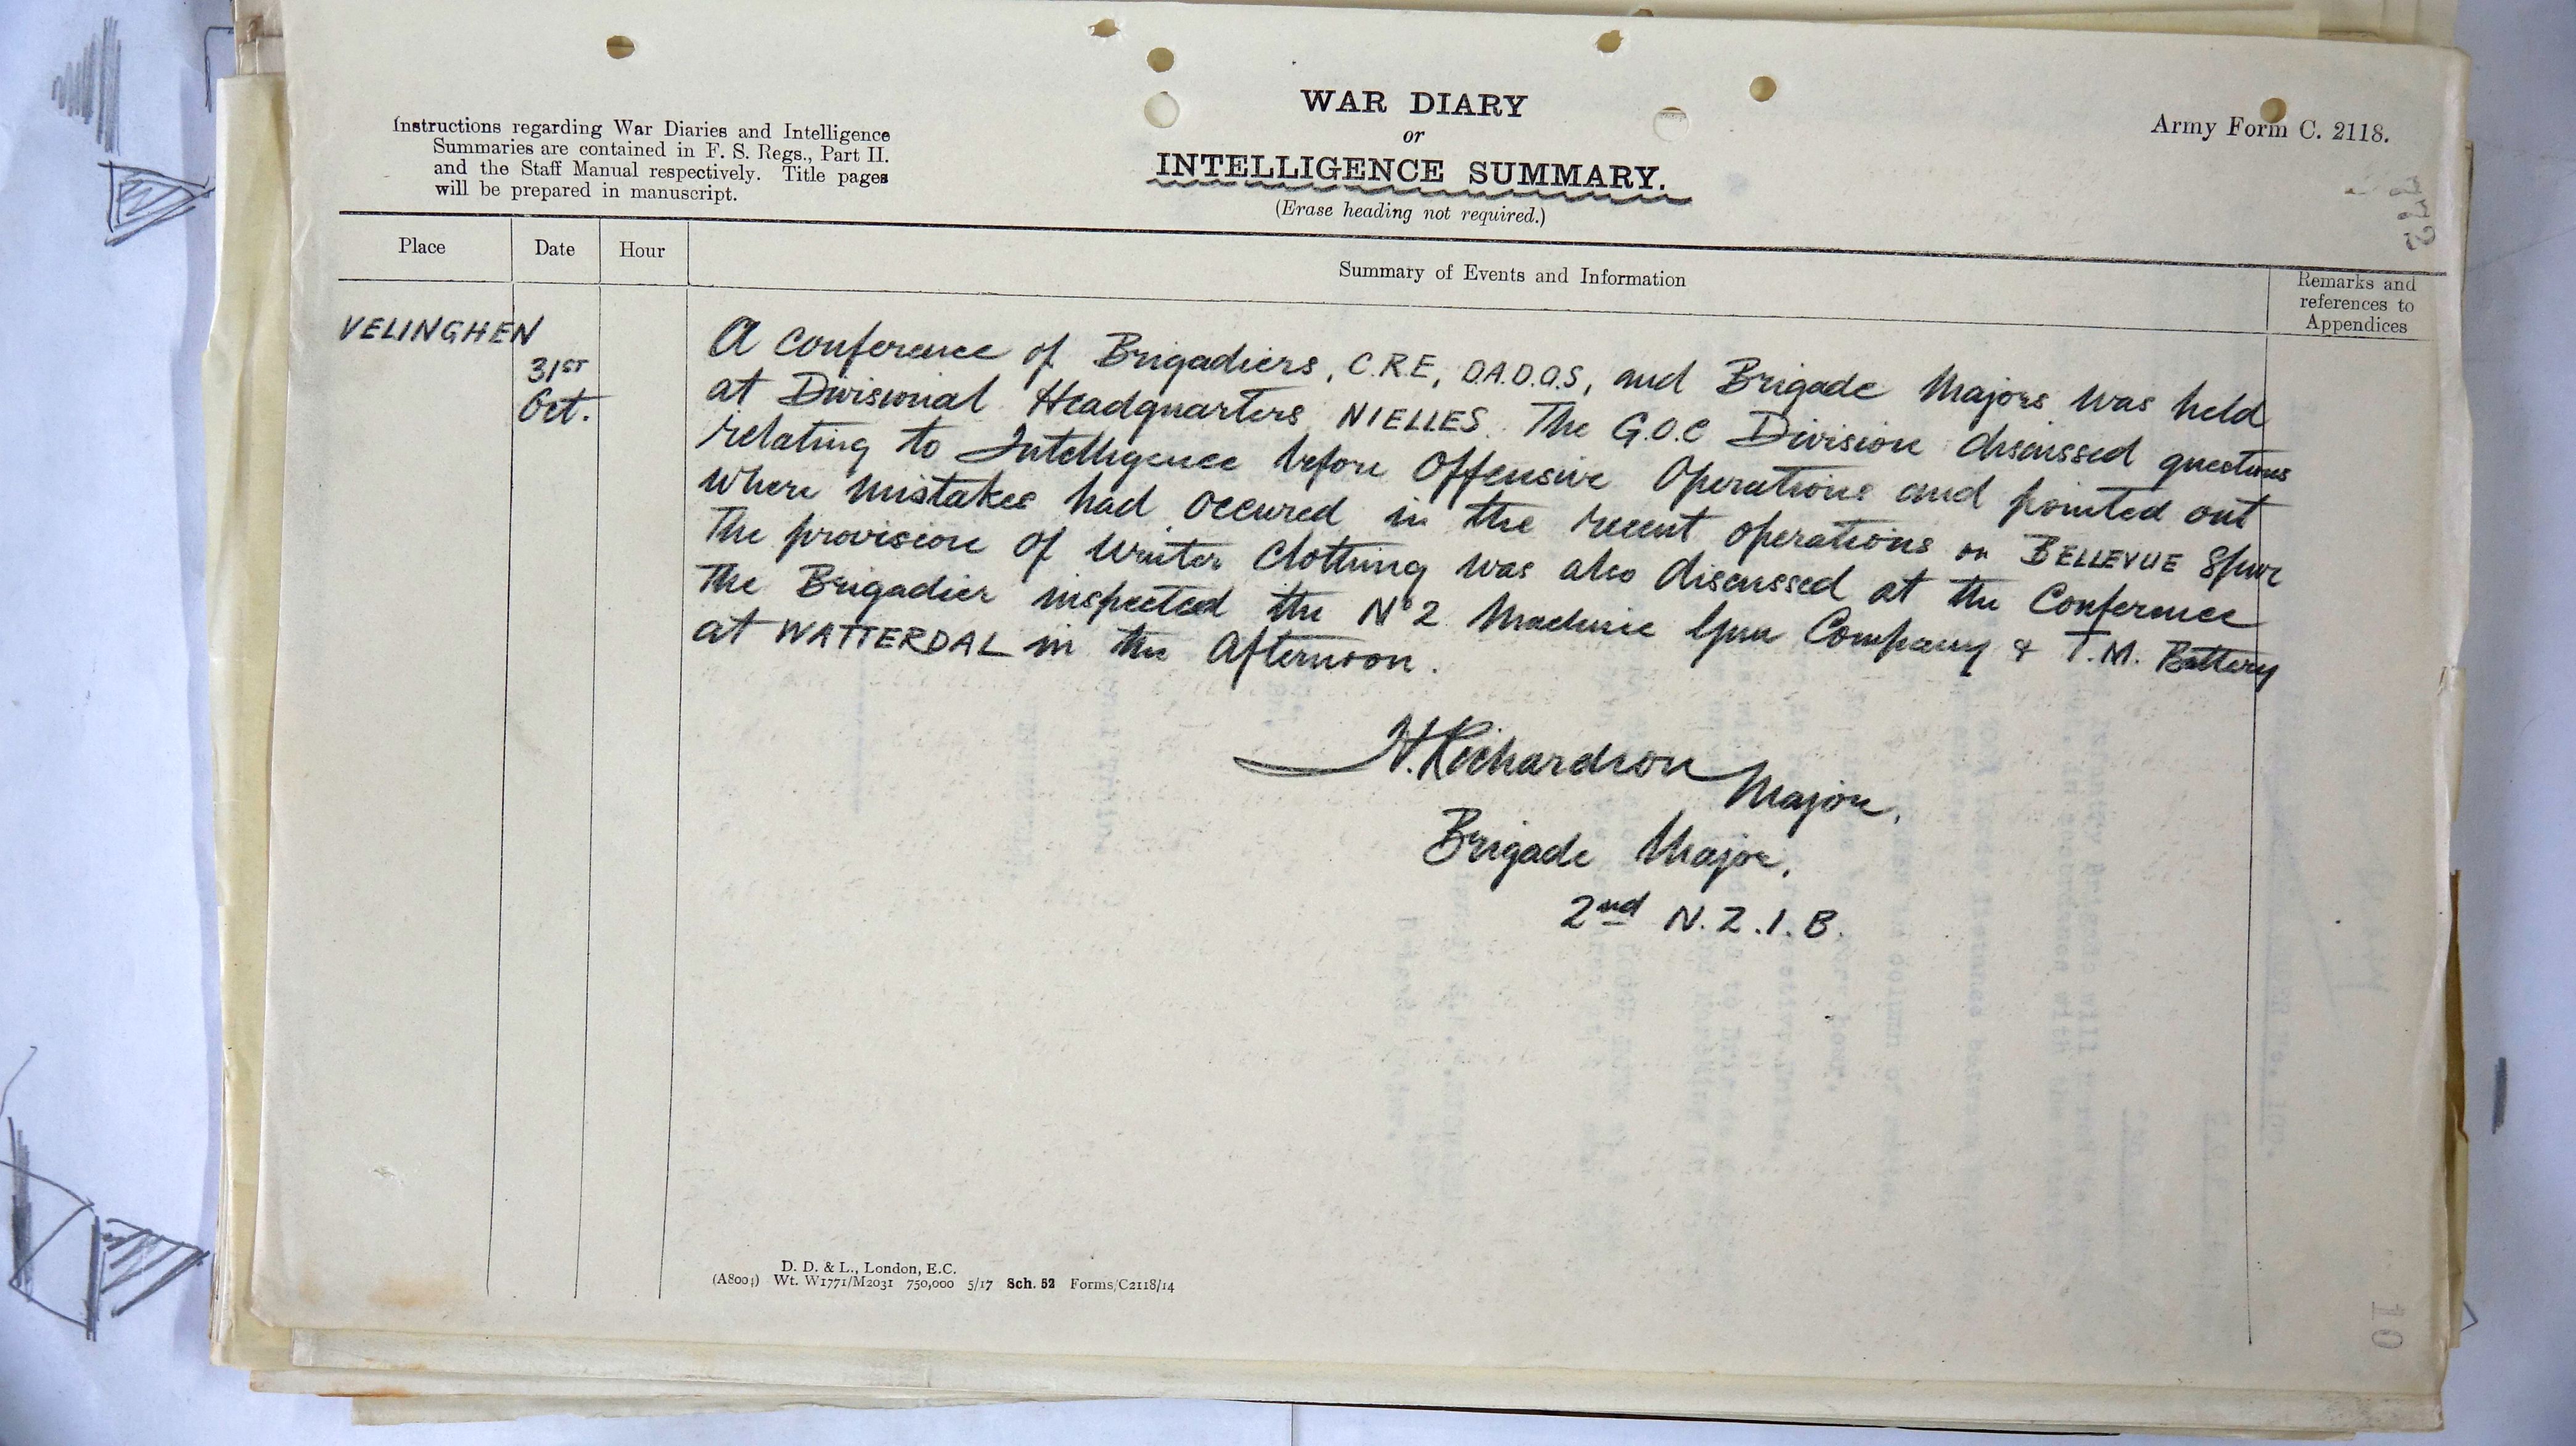 Instructions regarding War Diaries and Intelligence
Summaries are contained in F. S. Regs., Part II.
and the Staff Manual respectively. Title pages
will be prepared in manuscript.
WAR DIARY
or
INTELLIGENCE SUMMARY.
(Erase heading not required.)
Army Form C. 2118.
Place
Date
Hour
Summary of Events and Information
Remarks and
references to
Appendices
VELINGHEN
31ST
Oct.
A Conference of Brigadiers, C.R.E, D.A.D.O.S, and Brigade Majors was held
at Divisional Headquarters NIELLES. The G.O.C Division discussed questions
relating to Intelligence before Offensive Operations and pointed out
where mistakes had occured in the recent operations on BELLEVUE Spur
The provision of Winter Clothing was also discussed at the Conference
The Brigadier inspected the No 2 Machine Gun Company & T.M. Battery
at WATTERDAL in the Afternoon.
H. Richardson Major,
Brigade Major,
2nd N.Z.I.B.
D. D. & L., London, E.C.
(A8004) Wt. W1771/M2031 750,000 5/17 Sch. 52 Forms/C2118/14
10